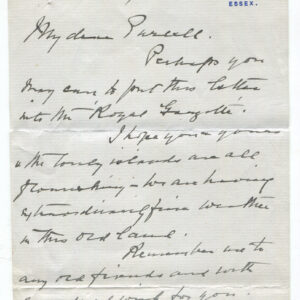 ESSEX.
My dear Purcell.
Perhaps you
may care to put this letter
into the "Royal Gazette".
I hope you & yours
& the lovely islands are all
flourishing – We are having
extraordinary fine weather
in this old land.
Remember me to
any old friends and with
for you.